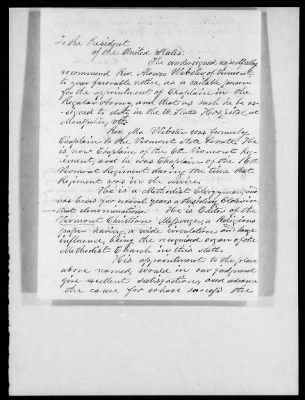 To the President
of the United States:
The undersigned respectfully
recommend Rev. Alonzo Webster of Vermont,
to your favorable notice, as a suitable person
for the appointment of Chaplain in the
Regular Army, and that as such he be as-
signed to duty in the U. States Hospital at
Montpelier, Vt.
Rev. Mr Webster was formerly
Chaplain to the Vermont State Senate. He
is now Chaplain of the 6th Vermont Reg-
iment, and he was Chaplain of the 16th
Vermont Regiment during the time that
Regiment was in the service.
He is a Methodist Clergyman, and
has been for several years a Presiding Elder in
that denomination. He is Editor of the
Vermont Christian Messenger, a Religious
paper having a wide circulation and large
influence, being the recognized organ of the
Methodist Church in this state.
His appointment to the place
above named, would in our judgment
give excellent satisfaction, and advance
the cause for whose success the